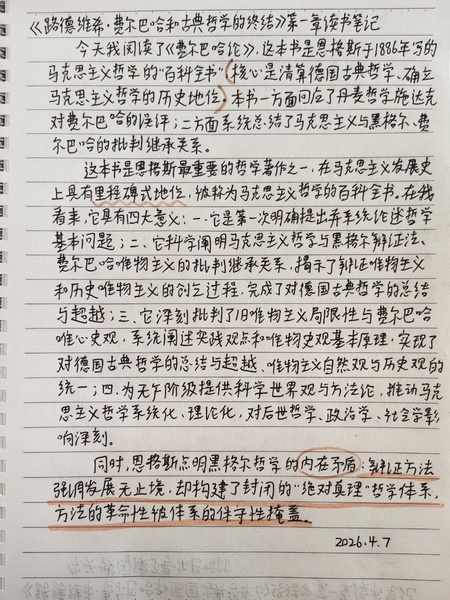 《路德维希·费尔巴哈和古典哲学的终结》第一章读书笔记
今天我阅读了《费尔巴哈论》,这本书是恩格斯于1886年写的
马克思主义哲学的"百科全书"(核心是清算德国古典哲学、确立
马克思主义哲学的历史地位)。本书一方面回应了丹麦哲学施达克
对费尔巴哈的误评;二方面系统总结了马克思主义与黑格尔、费
尔巴哈的批判继承关系。
这本书是恩格斯最重要的哲学著作之一,在马克思主义发展史
上具有里程碑式地位,被称为马克思主义哲学的百科全书。在我
看来,它具有四大意义:一、它是第一次明确提出并系统论述哲学
基本问题;二、它科学阐明马克思主义哲学与黑格尔辩证法、
费尔巴哈唯物主义的批判继承关系,揭示了辩证唯物主义
和历史唯物主义的创立过程,完成了对德国古典哲学的总结
与超越;三、它深刻批判了旧唯物主义局限性与费尔巴哈
唯心史观,系统阐述实践观点和唯物史观基本原理,实现了
对德国古典哲学的总结与超越、唯物主义自然观与历史观的
统一;四、为无产阶级提供科学世界观与方法论,推动马克
思主义哲学系统化、理论化,对后世哲学、政治学、社会学影
响深刻。
同时,恩格斯点明黑格尔哲学的内在矛盾:辩证方法
强调发展无止境,却构建了封闭的"绝对真理"哲学体系,
方法的革命性被体系的保守性掩盖。
2026.4.7